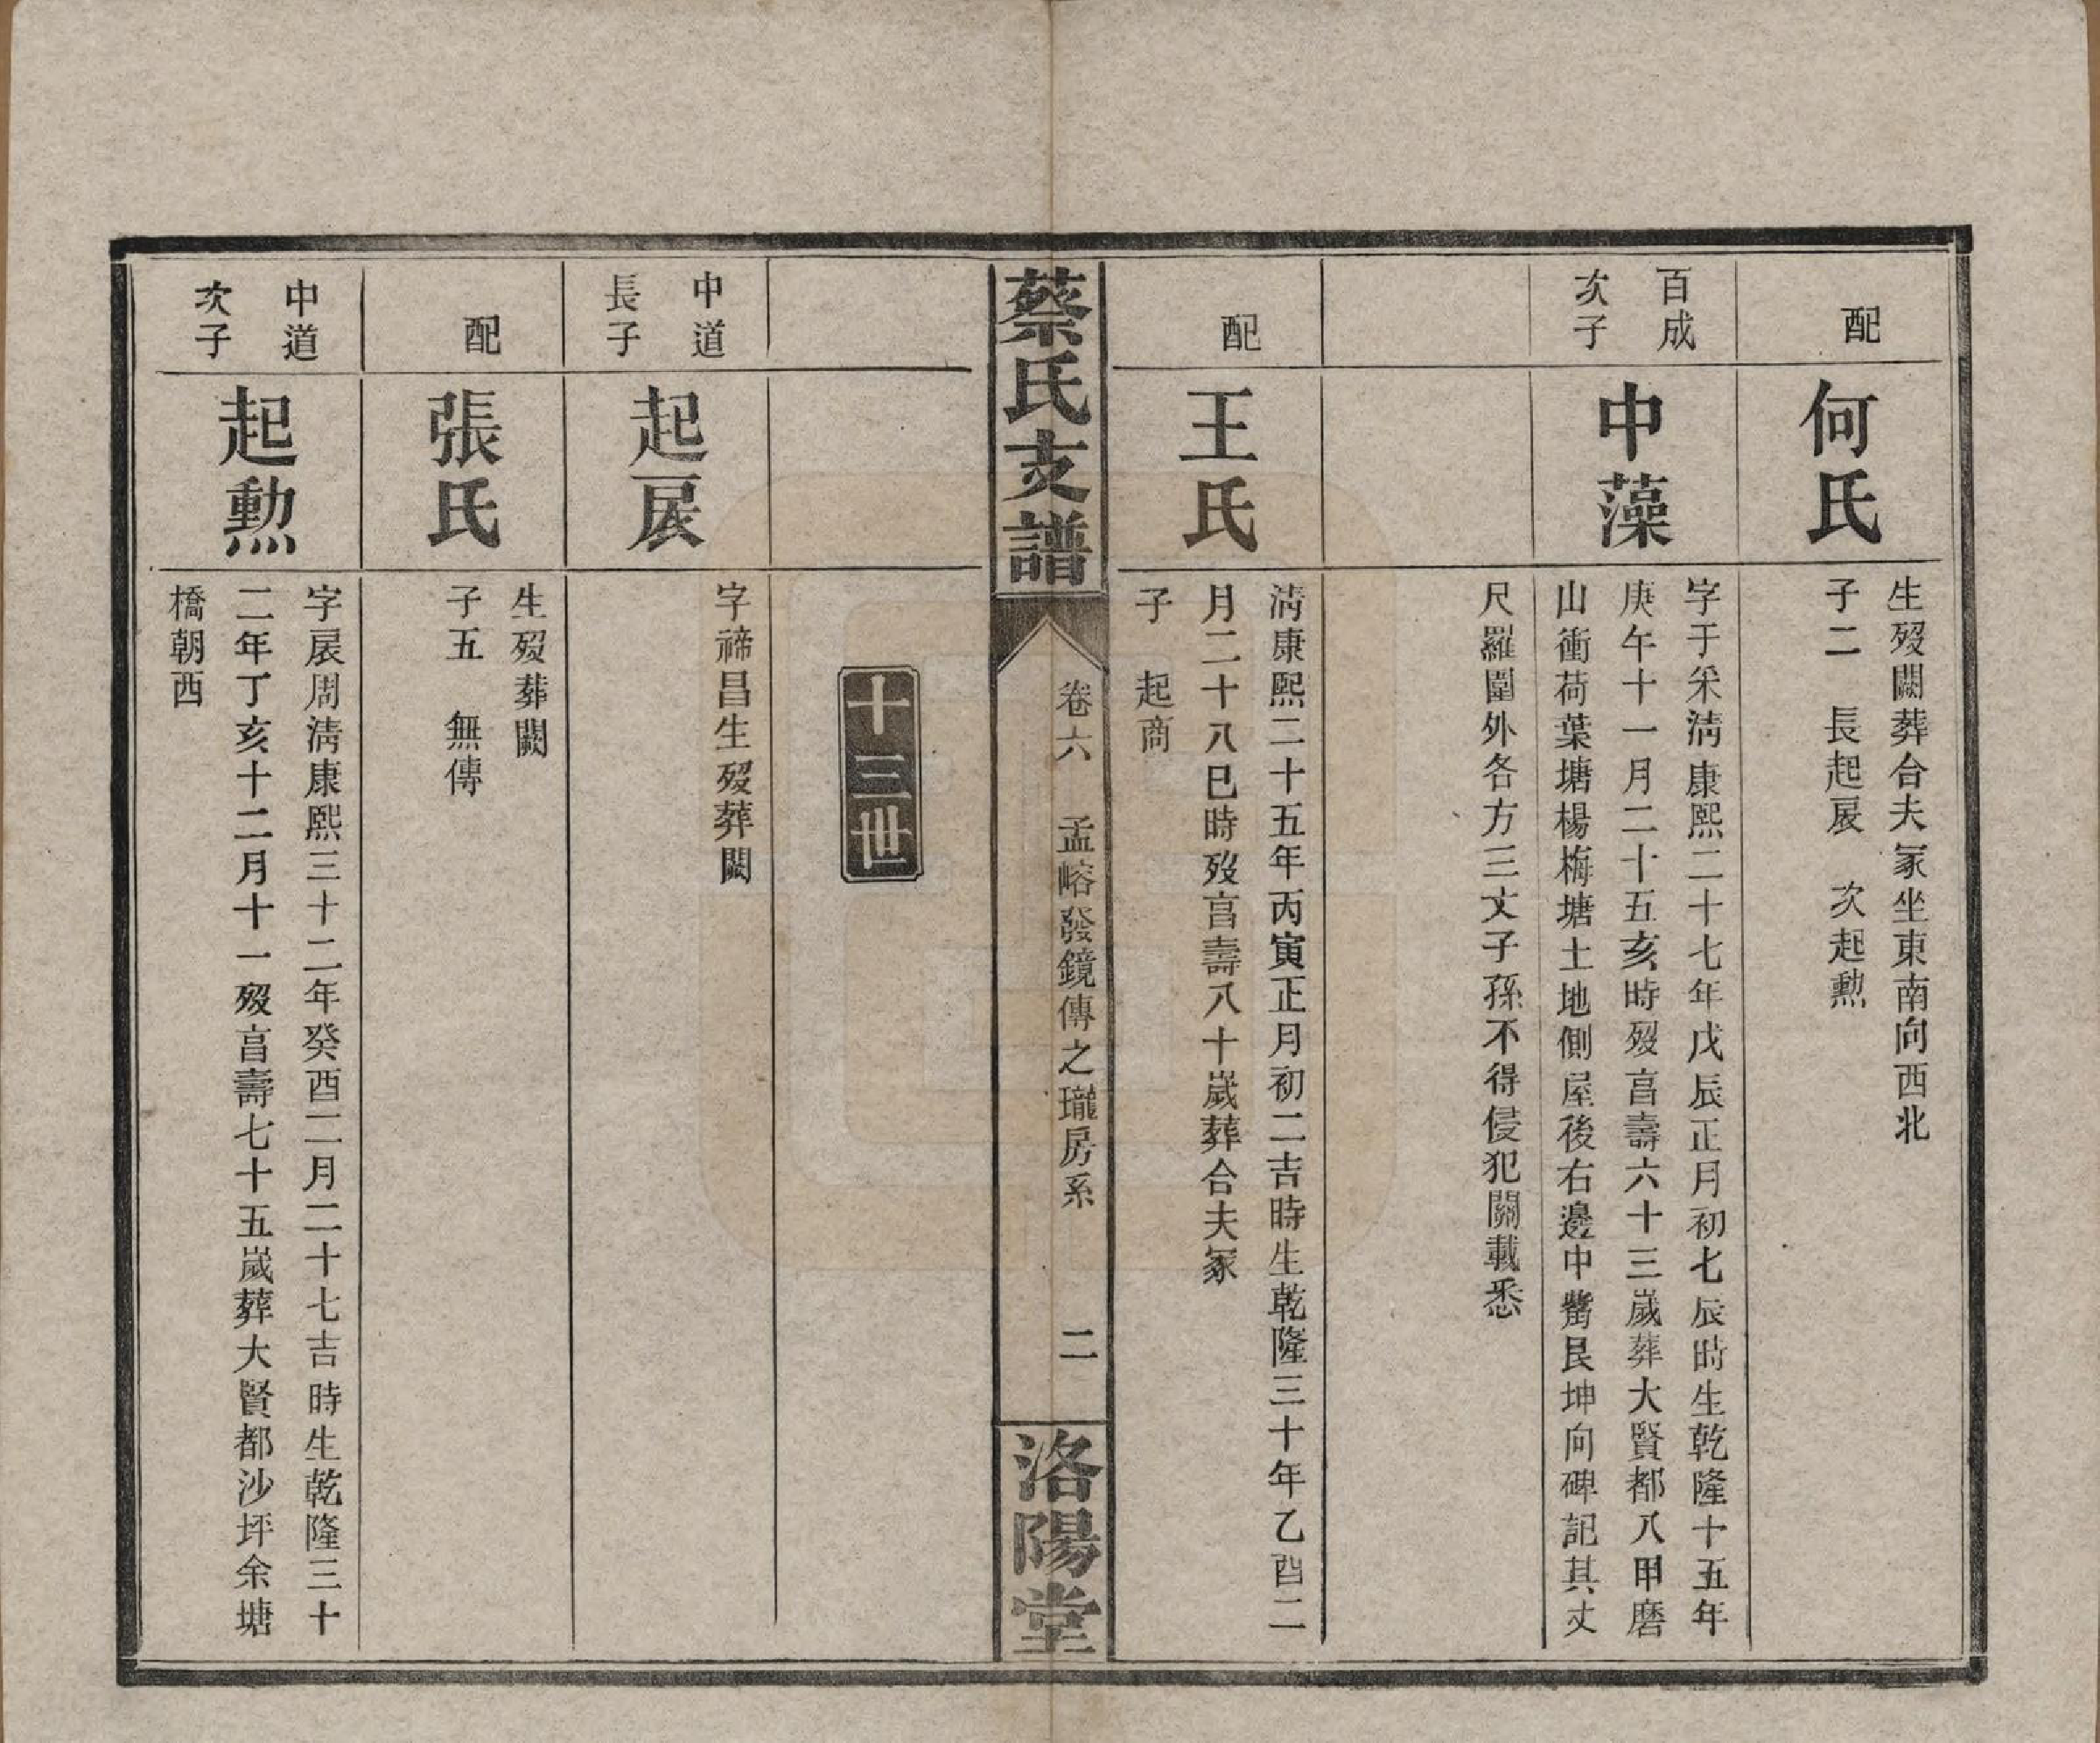 配
何氏
生歿闕葬合夫冢坐東南向西北
子二 長起扆 次起勲
百成
次子
中藻
字于采清康熙二十七年戊辰正月初七辰時生乾隆十五年
庚午十一月二十五亥時歿亯壽六十三嵗葬大賢都八甲磨
山衝荷葉塘楊梅塘土地側屋後右邊中艮坤向碑記其丈
尺羅圍外各方三丈子孫不得侵犯關載悉
配
王氏
清康熙二十五年丙寅正月初二吉時生乾隆三十年乙酉二
月二十八巳時歿亯壽八十嵗葬合夫冢
子 起商
蔡氏支譜
卷六 孟嵱發鏡傳之瓏房系 二
洛陽堂
十三世
中道
長子
起扆
字禘昌生歿葬闕
配
張氏
生歿葬闕
子五 無傳
中道
次子
起勲
字扆周清康熙三十二年癸酉二月二十七吉時生乾隆三十
二年丁亥十二月十一歿亯壽七十五嵗葬大賢都沙坪余塘
橋朝西